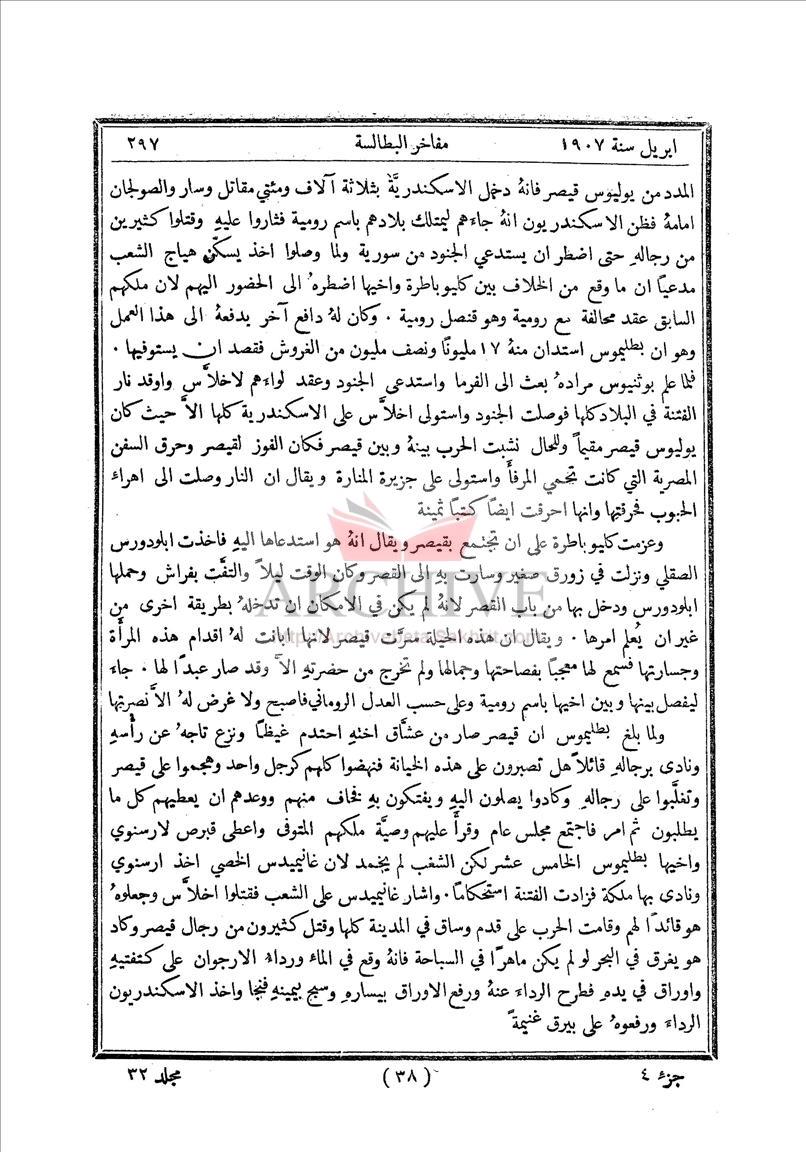 ابريل سنة ١٩٠٧ مفاخر البطالسة ٢٩٧
المدد من يوليوس قيصر فانهُ دخل الاسكندريَّة بثلاثة آلاف ومئتي مقاتل وسار والصولجان
امامهُ فظن الاسكندريون انهُ جاءهم ليمتلك بلادهم باسم رومية فثاروا عليهِ وقتلوا كثيرين
من رجالهِ حتى اضطر ان يستدعي الجنود من سورية ولما وصلوا اخذ يسكّن هياج الشعب
مدعياً ان ما وقع من الخلاف بين كليوباطرة واخيها اضطرهُ الى الحضور اليهم لان ملكهم
السابق عقد محالفة مع رومية وهو قنصل رومية ٠ وكان لهُ دافع آخر يدفعهُ الى هذا العمل
وهو ان بطليموس استدان منهُ ١٧ مليونًا ونصف مليون من الغروش فقصد ان يستوفيها ٠
فلما علم بوثنيوس مرادهُ بعث الى الفرما واستدعى الجنود وعقد لواءهم لاخلاَّس واوقد نار
الفتنة في البلاد كلها فوصلت الجنود واستولى اخلاَّس على الاسكندرية كلها الاَّ حيث كان
يوليوس قيصر مقيماً وللحال نشبت الحرب بينهُ وبين قيصر فكان الفوز لقيصر وحرق السفن
المصرية التي كانت تحمي المرفأَ واستولى على جزيرة المنارة ويقال ان النار وصلت الى اهراء
الحبوب فحرقتها وانها احرقت ايضًا كتبًا ثمينة
وعزمت كليوباطرة على ان تجتمع بقيصر ويقال انهُ هو استدعاها اليهِ فاخذت ابلودورس
الصقلي ونزلت في زورق صغير وسارت بهِ الى القصر وكان الوقت ليلاً والتفَّت بفراش وحملها
ابلودورس ودخل بها من باب القصر لانهُ لم يكن في الامكان ان تدخلهُ بطريقة اخرى من
غير ان يُعلم امرها ٠ ويقال ان هذه الحيلة سرَّت قيصر لانها ابانت لهُ اقدام هذه المرأَة
وجسارتها فسمع لها معجبًا بفصاحتها وجمالها ولم تخرج من حضرتهِ الاَّ وقد صار عبدًا لها ٠ جاءَ
ليفصل بينها وبين اخيها باسم رومية وعلى حسب العدل الروماني فاصبح ولا غرض لهُ الاَّ نصرتها
ولما بلغ بطليموس ان قيصر صار من عشَّاق اختهِ احتدم غيظًا ونزع تاجهُ عن رأْسهِ
ونادى برجالهِ قائلاً هل تصبرون على هذه الخيانة فنهضوا كلهم كرجل واحد وهجموا على قيصر
وتغلَّبوا على رجالهِ وكادوا يصلون اليهِ ويفتكون بهِ فخاف منهم ووعدهم ان يعطيهم كل ما
يطلبون ثم امر فاجتمع مجلس عام وقرأَ عليهم وصيَّة ملكهم المتوفى واعطى قبرص لارسنوي
واخيها بطليموس الخامس عشر لكن الشغب لم يخمد لان غانيميدس الخصي اخذ ارسنوي
ونادى بها ملكة فزادت الفتنة استحكامًا ٠ واشار غانيميدس على الشعب فقتلوا اخلاَّس وجعلوهُ
هو قائدًا لهم وقامت الحرب على قدم وساق في المدينة كلها وقتل كثيرون من رجال قيصر وكاد
هو يغرق في البحر لو لم يكن ماهرًا في السباحة فانهُ وقع في الماء ورداءُ الارجوان على كتفيهِ
واوراق في يدهِ فطرح الرداءَ عنهُ ورفع الاوراق بيسارهِ وسبح بيمينهِ فنجا واخذ الاسكندريون
الرداءَ ورفعوهُ على بيرق غنيمةً
جزء ٤ (٣٨) مجلد ٣٢
ARCHIVE